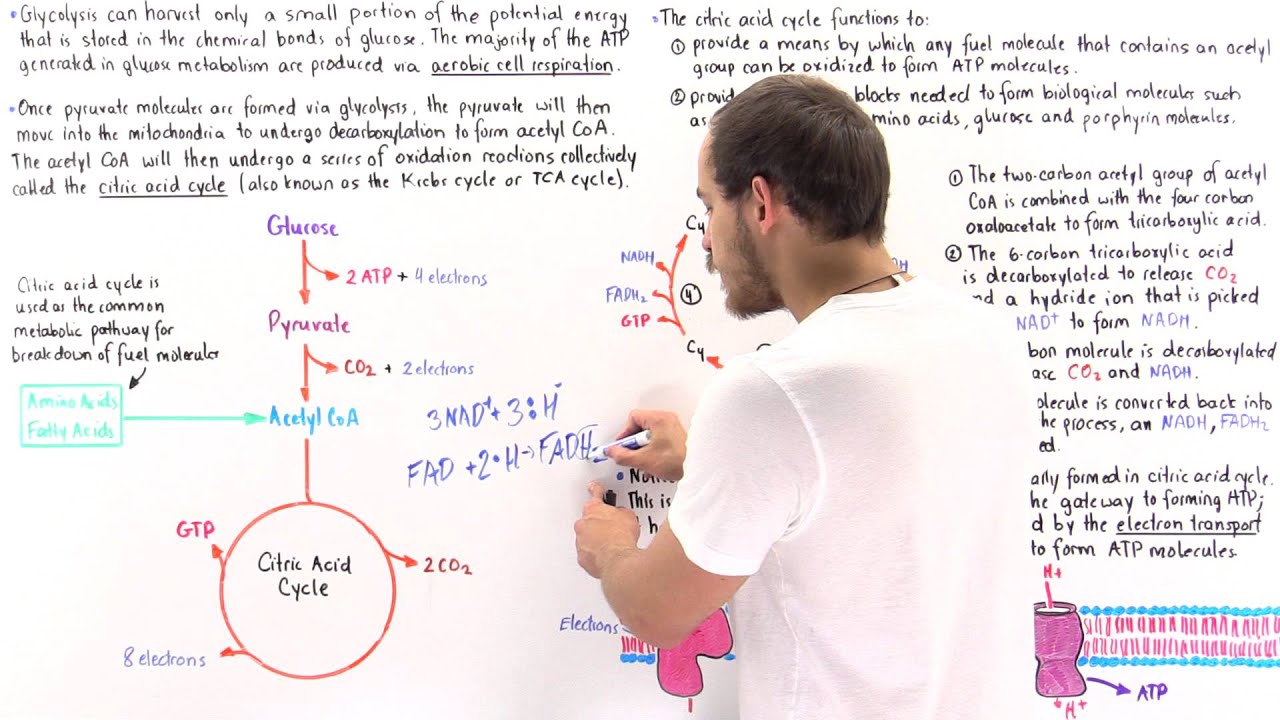 •Glycolysis can harvest only a small portion of the potential energy
that is stored in the chemical bonds of glucose. The majority of the ATP
generated in glucose metabolism are produced via aerobic cell respiration.
•Once pyruvate molecules are formed via glycolysis, the pyruvate will then
move into the mitochondria to undergo decarboxylation to form acetyl CoA.
The acetyl CoA will then undergo a series of oxidation reactions collectively
called the citric acid cycle (also known as the Krebs cycle or TCA cycle).
Glucose
2 ATP + 4 electrons
Pyruvate
CO2 + 2 electrons
Citric acid cycle is
used as the common
metabolic pathway for
breakdown of fuel molecules
Amino Acids
Fatty Acids
Acetyl CoA
3NAD+ + 3:H-
FAD + 2•H → FADH2
GTP
Citric Acid
Cycle
2CO2
8 electrons
•The citric acid cycle functions to:
① provide a means by which any fuel molecule that contains an acetyl
group can be oxidized to form ATP molecules.
② blocks needed to form biological molecules such
as amino acids, glucose and porphyrin molecules.
NADH
FADH2
GTP
④
① The two-carbon acetyl group of acetyl
CoA is combined with the four carbon
oxaloacetate to form tricarboxylic acid.
② The 6-carbon tricarboxylic acid
is decarboxylated to release CO2
a hydride ion that is picked
NAD+ to form NADH.
molecule is decarboxylated
CO2 and NADH.
is converted back into
process, an NADH, FADH2
formed in citric acid cycle.
gateway to forming ATP;
by the electron transport
to form ATP molecules
This is
Electrons
H+
ATP
H+